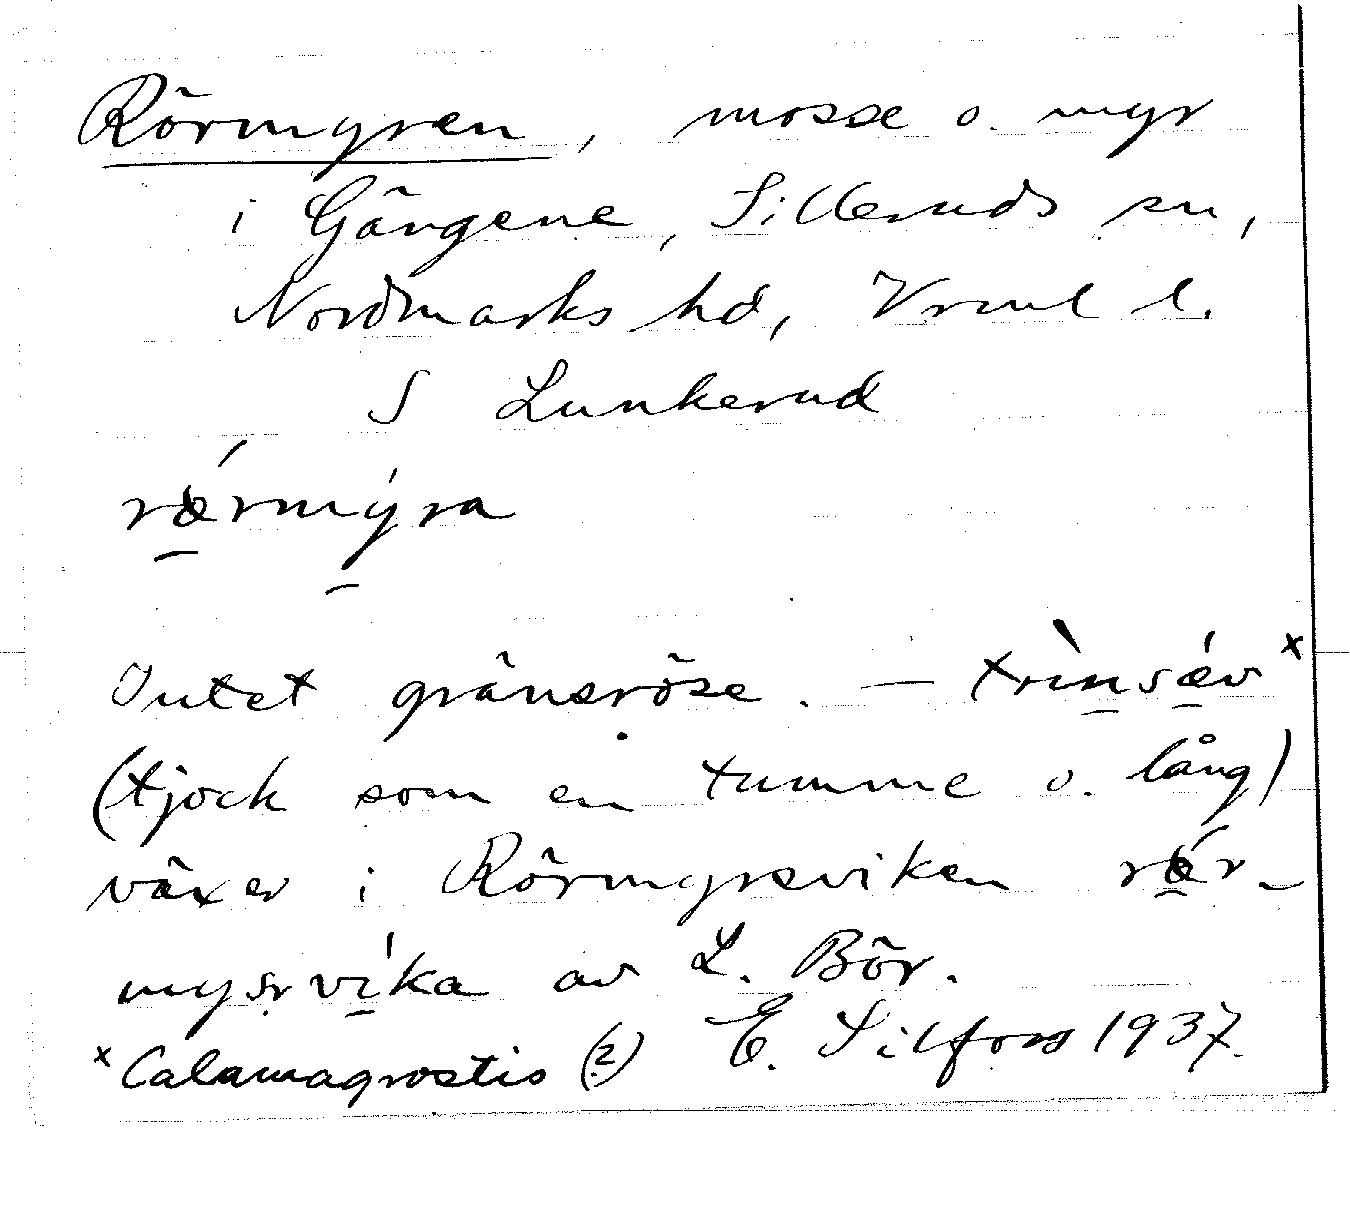 Rörmyren, mosse o. myr
i Gängene, Silleruds sn,
Nordmarks hd, Vrml l.
S Lunkerud
rǽrmýra
Intet gränsröse. — trìnsǽv x
(tjock som en tumme o. lång)
växer i Rörmyrsviken rǽr-
mysrvíka av L. Bör.
x Calamagrostis (?) E. Silfors 1937.